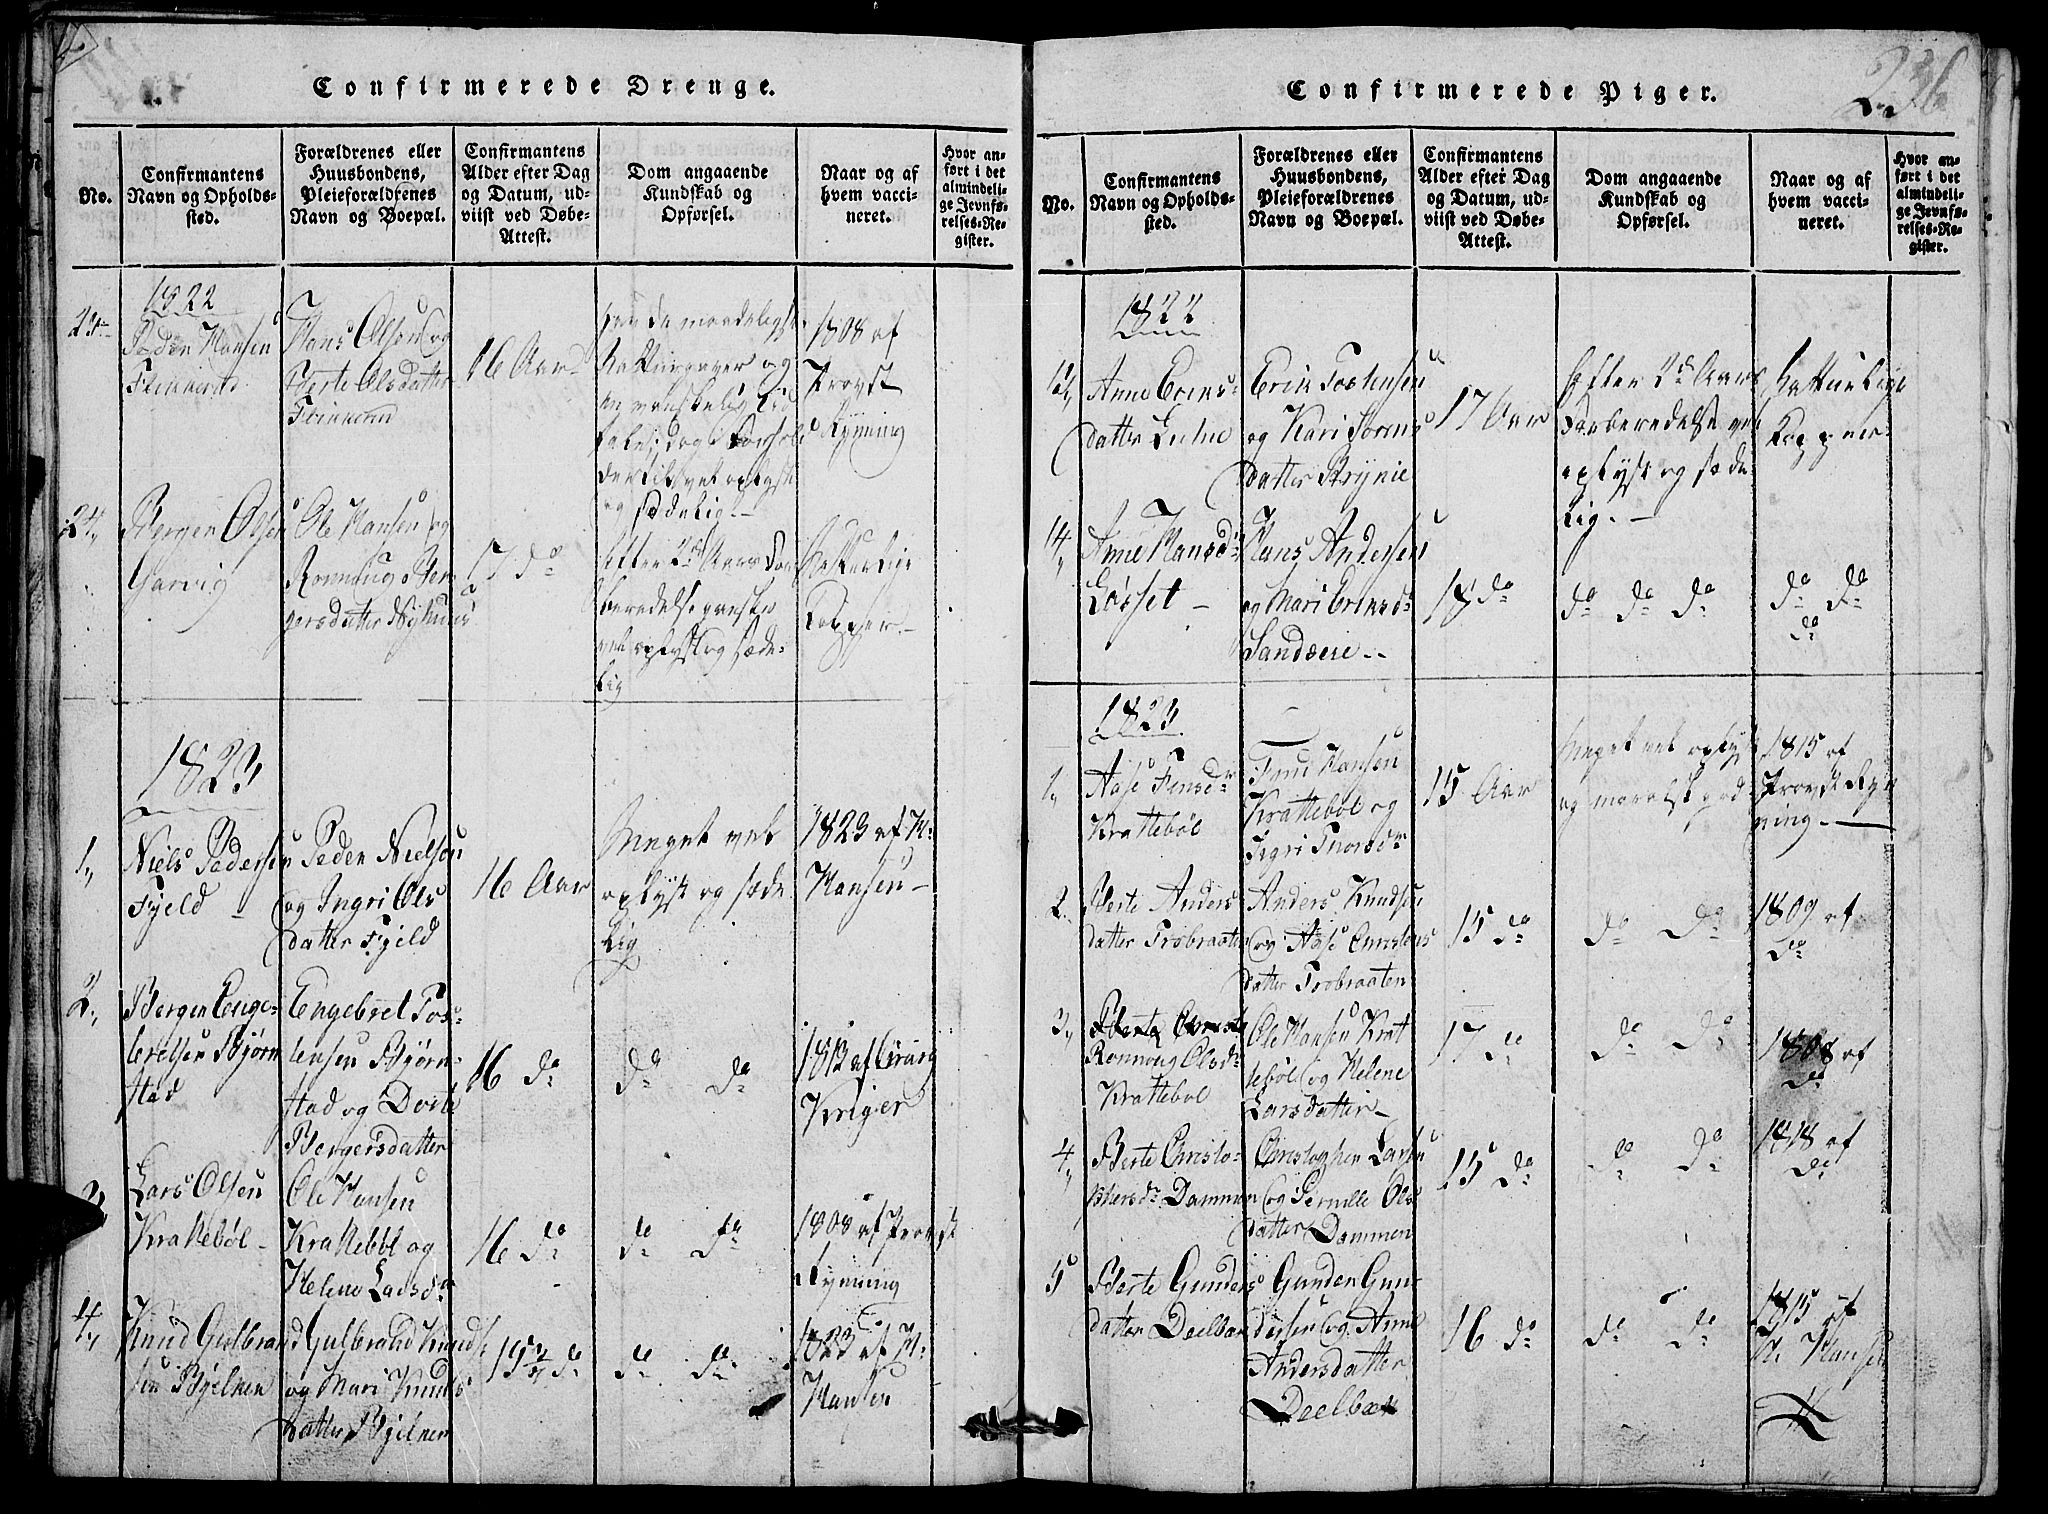 Confirmerede Drenge.
No.
Confirmantens
Navn og Opholds-
sted.
Forældrenes eller
Huusbondens,
Pleieforældrenes
Navn og Boepæl.
Confirmantens
Alder efter Dag
og Datum, ud-
viist ved Døbe-
Attest.
Dom angaaende
Kundskab og
Opførsel.
Naar og af
hvem vacci-
neret.
Hvor an-
ført i det
almindeli-
ge Jevnfø-
relses-Re-
gister.
1822
Peder Hansen
Hans Olsen og
Berte Olsdatter
16 Aar
og sædelig.-
1808 af
Provst
Rynning
24,
Bergen Olsen
Garvig
Ole Hansen og
Ronnaug Ber-
gersdatter Nyhuus
17 do
Efter 2de Aars For
beredelse
vel oplyst og sæde-
lig
Naturlige
Kopper-
1823
1,
Niels Pedersen
Fjeld -
Peder Nielsen
og Ingri Ols
datter Fjeld
16 Aar
Meget vel
oplyst og sæde
lig
1823 af H.
Hansen-
2.,
Bergen Enge-
bretsen Bjørn
stad
Engebret Tos-
tensen Bjørn-
stad og Dorte
Bergersdatter
16 do
do do
1813 af Chirurg
Krøger
3,
Lars Olsen
Krattebøl-
Ole Hansen
Krattebøl og
Helene Larsdr
16 do
do do
1808 af Provst
Rynning
4,
Knud Gulbran
sen Bjelken
Gulbrand Knuds.
og Mari Knuds
datter Bjelken
do
do do
1823 af H.
Hansen
Confirmerede Piger.
236
No.
Confirmantens
Navn og Opholds-
sted.
Forældrenes eller
Huusbondens,
Pleieforældrenes
Navn og Boepæl.
Confirmantens
Alder efter Dag
og Datum, ud-
viist ved Døbe-
Attest.
Dom angaaende
Kundskab og
Opførsel.
Naar og af
hvem vacci-
neret.
Hvor an-
ført i det
almindeli-
ge Jevnfø-
relses-Re-
gister.
1822
13,
Anne Eriks-
datter
Erik Tostensen
og Kari Jorens
datter Brynie
17 Aar
Efter 2de Aars
Forberedelse vel
oplyst og sæde-
lig. -
Naturlige
Kopper-
14,
Anne Hansdr
Løsset -
Hans Andersen
og Mari Eriksdr
Sandøeie -
18 do
do do do
do do
do
1823
1,
Aase Finsdr
Krattebøl
Finn Hansen
Krattebøl og
Sigri Thorsdr
15 Aar
Meget vel oplyst
og moralsk god-
1815 af
Provst Ryn
ning. -
2.
Berte Anders
datter Frobraaten
Anders Knudsen
og Aase Christens
datter Frobraaten
15 do
do do
1809 af
do
3,
Ronnaug Olsdr
Krattebøl
Ole Hansen Krat
tebøl og Helene
Larsdatter-
17 do
do do
1808 af
do
4,
Berte Christo-
phersdr Dammen
Christopher Larsen
og Pernille Ols
datter Dammen
15 do
do do
1818 af
do
5
Berte Gunders
datter Deelbæk
Gunder Gun
dersen og Anne
Andersdatter
Deelbæk
16 do
do do
1815 af
H. Hansen